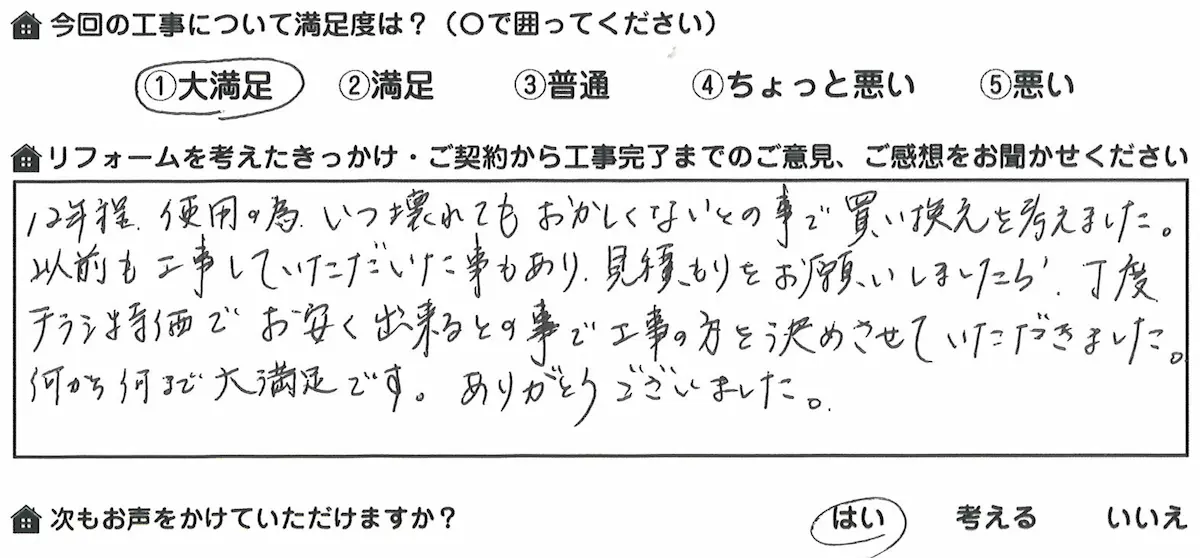 今回の工事について満足度は？（〇で囲ってください）
①大満足 ②満足 ③普通 ④ちょっと悪い ⑤悪い
リフォームを考えたきっかけ・ご契約から工事完了までのご意見、ご感想をお聞かせください
12年程.使用の為.いつ壊れてもおかしくないとの事で買い換えを考えました。
以前も工事していただいた事もあり.見積もりをお願いしましたら、丁度
チラシ特価でお安く出来るとの事で工事の方を決めさせていただきました。
何から何まで大満足です。ありがとうございました。
次もお声をかけていただけますか？
はい 考える いいえ